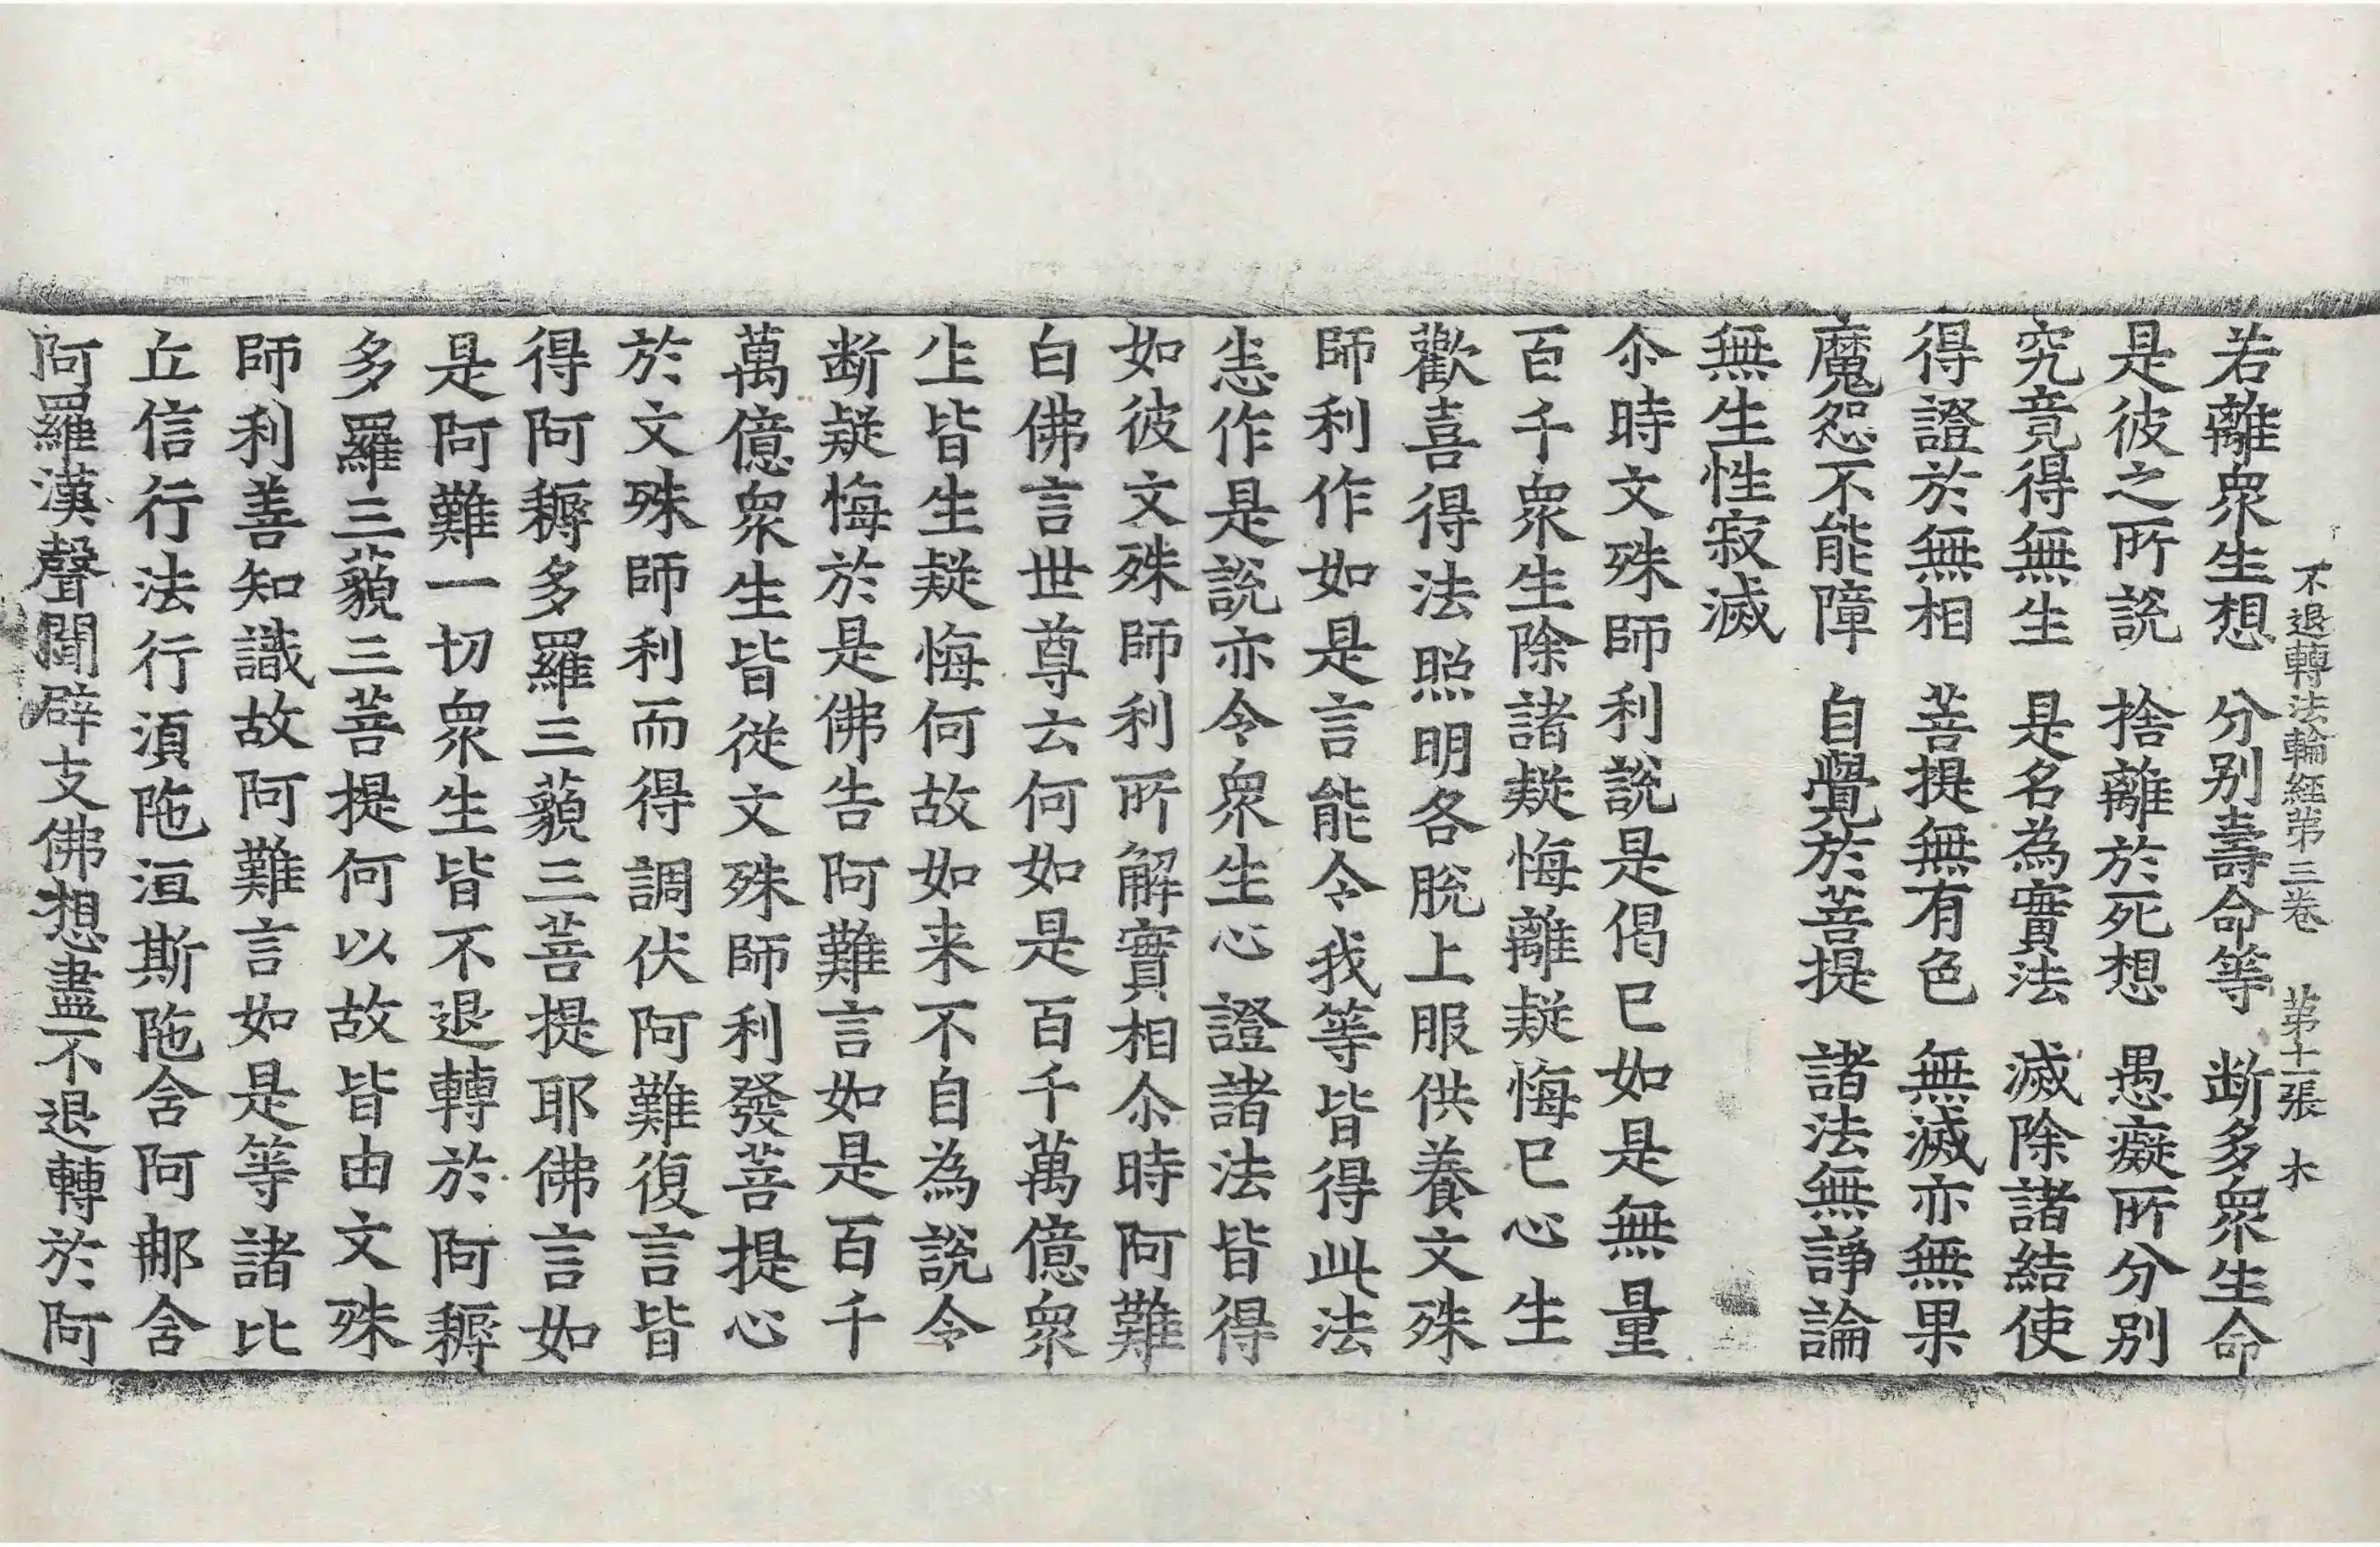 不退轉法輪經第三卷 第十一張 木
若離衆生想 分别壽命等 断多衆生命
是彼之所說 捨離於死想 愚癡所分别
究竟得無生 是名為實法 滅除諸結使
得證於無相 菩提無有色 無滅亦無果
魔怨不能障 自覺於菩提 諸法無諍論
無生性寂滅
尒時文殊師利說是偈已如是無量
百千衆生除諸疑悔離疑悔已心生
歡喜得法照明各脫上服供養文殊
師利作如是言能令我等皆得此法
恙作是說亦令衆生心證諸法皆得
如彼文殊師利所解實相尒時阿難
白佛言世尊云何如是百千萬億衆
生皆生疑悔何故如来不自為說令
断疑悔於是佛告阿難言如是百千
萬億衆生皆從文殊師利發菩提心
於文殊師利而得調伏阿難復言皆
得阿耨多羅三藐三菩提耶佛言如
是阿難一切衆生皆不退轉於阿耨
多羅三藐三菩提何以故皆由文殊
師利善知識故阿難言如是等諸比
丘信行法行湏陁洹斯陁含阿那含
阿羅漢聲聞辟支佛想盡不退轉於阿